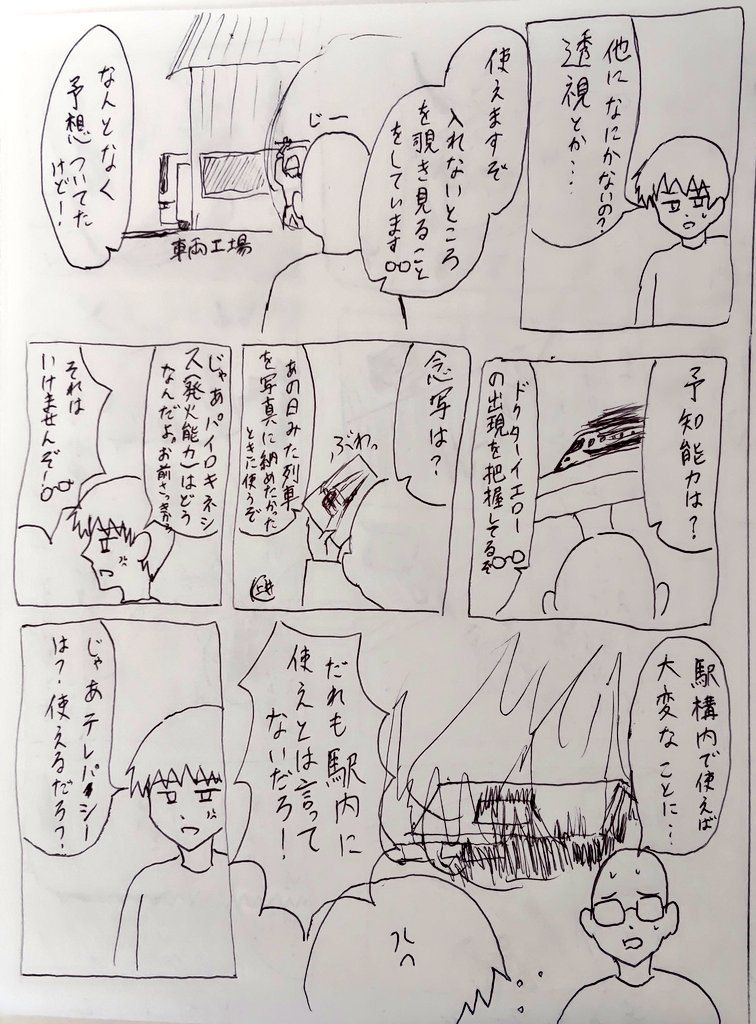 他になにかないの?
透視とか…
使えますぞ
入れないところ
を覗き見ること
をしています
じー
車両工場
なんとなく
予想ついてた
けど!
予知能力は?
ドクターイエロー
の出現を把握してるぞ
念写は?
ぶわっ
あの日みた列車
を写真に納めたかった
ときに使うぞ
じゃあパイロキネシ
ス(発火能力)はどう
なんだよ。お前さっきから
それは
いけませんぞー
駅構内で使えば
大変なことに…
だれも駅内に
使えとは言って
ないだろ!
じゃあテレパシー
は?使えるだろ?